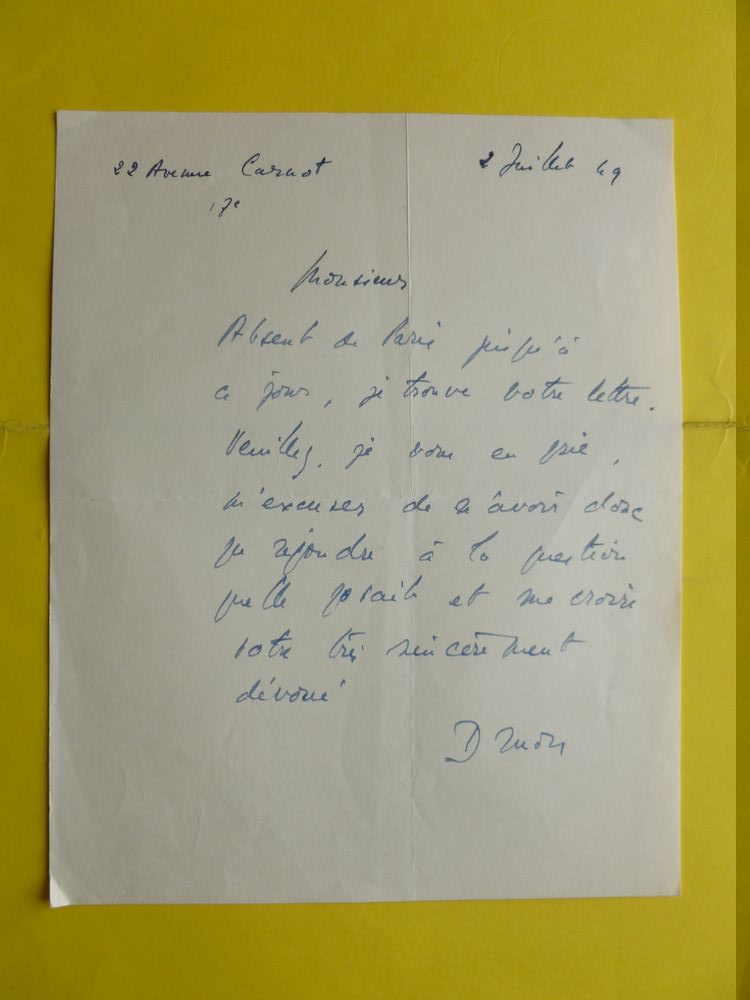 22 Avenue Carnot
17e
2 Juillet 49
Monsieur
Absent de Paris jusqu'à
ce jour, je trouve votre lettre.
Veuillez, je vous en prie,
m'excuser de n'avoir donc
pu répondre à la question
qu'elle posait et me croire
votre très sincèrement
dévoué